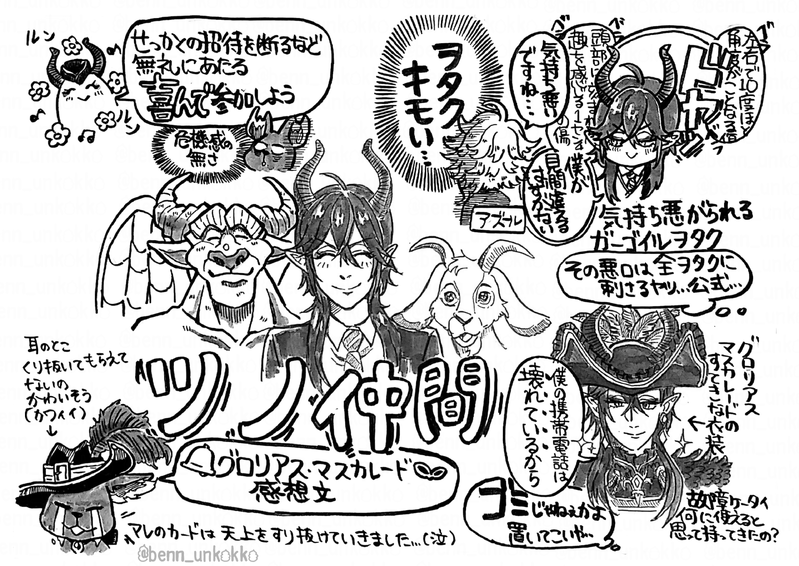 ルン
ルン
せっかくの招待を断るなど
無礼にあたる
喜んで参加しよう
危機感の
無さ
ヲタク
キモい…
気持ち悪い
ですね…
アズール
左右で10度ほど
角度がことなる角
頭部に刻まれ
趣を感じる
ドヤッ
ゴゴゴ
僕が
見間違える
はずがない
気持ち悪がられる
ガーゴイルヲタク
その悪口は全ヲタクに
刺さるヤツ…公式…
ツノ仲間
耳のとこ
くり抜いてもらえて
ないの
かわいそう
(カワイイ)
グロリアス・マスカレード
感想文
アレのカードは天上をすり抜けていきました…(泣)
グロリアス
マスカレードの
すてきな衣装
僕の携帯電話は
壊れているから
ゴミじゃねぇかよ
置いてこいや…
故障ケータイ
何に使えると
思って持ってきたの?
@benn_unkokko